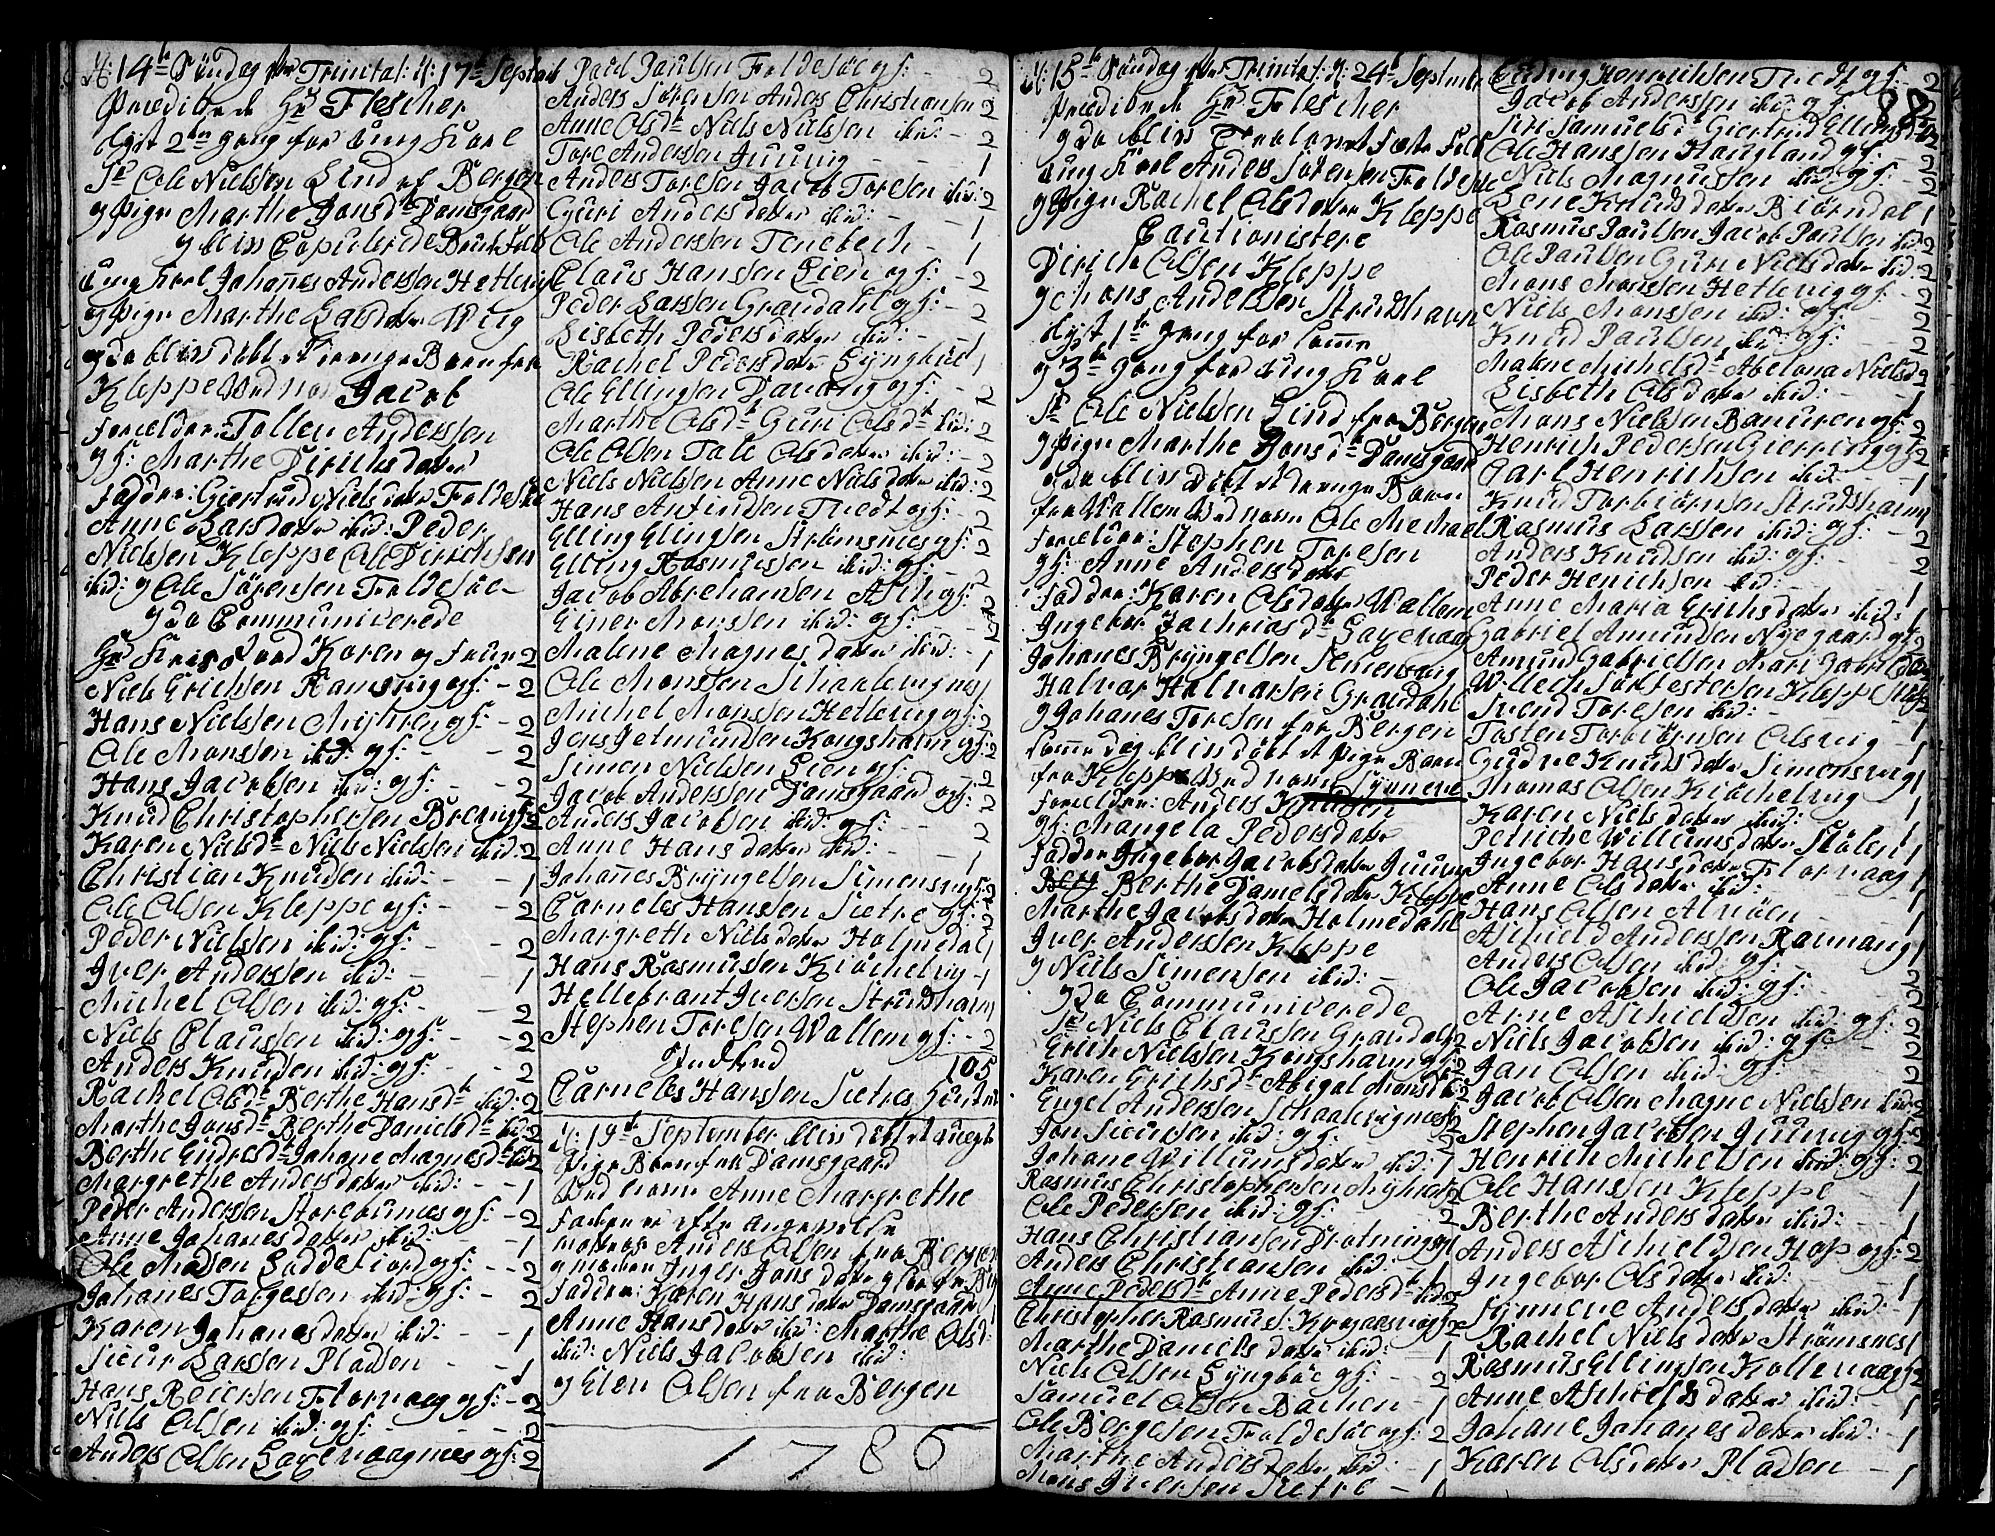 d: 14de Søndag p: Trinitat: d: 17de Septemb
Prædiket Hr Flescher
lyst 2den gang for ung Karl
Sr Ole Nielssen Lind af Bergen
og Pige Marthe Jonsdr Damsgaard
ung Karl Johanes Anderssen Hetlevig
og Pige Marthe Larsdatter
og da blev døbt et Drenge Barn fra
Kleppe ved navn Jacob
Forældre: Tollen Anderssen
og h: Marthe Dirichsdatter
Faddere: Giertrud Nielsdatter Foldesøe
Anne Larsdatter ibid: Peder
Nielssen Kleppe Ole Dirichsen
ibid: og Ole Sørensen Foldesøe
og da Communicerede
Niels Erichsen Ramsvig og h: - 2
Hans Nielssen Myhren og h: - 2
Ole Monssen ibid: og h: - 2
Hans Jacobsen ibid: og h: - 2
Knud Christophersen
Karen Nielsdr Niels Nielssen ibid: 2
Christian Knudsen ibid: - 1
Ole Olsen Kleppe og h: - 2
Peder Nielssen ibid: og h: - 2
Iver Anderssen ibid: - 1
Michel Olsen ibid: og h: - 2
Niels Claussen ibid: og h: - 2
Anders Knudsen ibid: og h: - 2
Rachel Olsdr Berthe Hansdr ibid: 2
Marthe Jonsdr Berthe Danielsdr ibid: 2
Berthe Endresdr Johane Magnesdr ibid 2
Margrethe Andersdatter ibid: - 1
Peder Anderssen Storebunæs og h: - 2
Anne Johanesdatter ibid: - 1
Ole Madsen Loddefiord og h: - 2
Johanes Torgessen ibid: og h: - 2
Karen Johanesdatter ibid: - 1
Siur Larssen Pladsen - 1
Hans Reiersen Florvaag og h: - 2
Niels Olsen ibid: og h: - 2
Anders Olsen og h: 2
Poul Paulsen Foldesøe og h: - 2
Anders Sørensen Anders Christiansen 2
Anne Olsdr Niels Nielssen ibid: - 2
Tore Anderssen Juuvig - 1
Anders Toresen Jacob Toresen ibid: 2
Guri Andersdatter ibid: - 1
Ole Anderssen Tenebech - 1
Claus Hanssen Lien og h: - 2
Peder Larssen Gravdahl og h: - 2
Lisbeth Pedersdatter ibid: - 1
Rachel Pedersdatter Lyngbøe 1
Ole Ellingsen og h: - 2
Marthe Olsdr Guri Olsdr ibid: 2
Ole Olsen Tale Olsdatter ibid: - 2
Niels Nielssen Anne Nielsdatter ibid: 2
Hans Antindsen Tredt og h: - 2
Elling Elingsen Strømsnæs og h: 2
Elling Rasmussen ibid: og h: - 2
Jacob Abrehamsen Ask og h: 2
Einer Monssen ibid: og h: - 2
Malene Magnesdatter ibid: - 1
Ole Monssen Schaalevignes 1
Michel Monssen Hetlevig og h: 2
Jens Jetmundsen Kongshavn og h: 2
Simon Nielssen Lien og h: - 2
Jacob Anderssen Damsgaard og h: 2
Anders Jacobsen ibid: og h: - 2
Anne Hansdatter ibid: - 1
Johanes Bryngelsen Simensvig
Carneles Hanssen Sletre og h: 2
Margreth Nielsdatter Holmedal 1
Hans Rasmussen Kiøchelvig - 1
Hellebrant Iversen Strudshavn
Stephen Toresen Vallem og h: - 2
105
Carneles Hanssen Sletres
d: 19de September blev døbt et uægte
Pige Barn fra Damsgaard
ved navn Anne Margrethe
Faderen efter angivelse
Anders Olsen fra Bergen
og moderen Inger Jonsdatter
Faddere: Karen Hansdatter Damsgaard
Anne Hansdatter ibid: Marthe Olsdr
ibid: Niels Jacobsen ibid:
og Elen Olsen fra Bergen
1786
d: 15de Søndag p: Trinitat: d: 24de Septemb
Prædiket Hr Flescher
og da blev Trolovet
ung Karl Anders Sørensen Foldesøe
og Pige Rachel Olsdatter Kleppe
Cautionistere
Dirich Olsen Kleppe
og Mons Anderssen Strudshavn
lyst 1te gang for samme
og 3de gang for ung Karl
Sr Ole Nielssen Lind fra Bergen
og Pige Marthe Jonsdr Damsgaard
og da blev døbt et drenge Barn
fra Vallem ved navn Ole Michael
Forældre: Stephen Toresen
og h: Anne Andersdatter
Faddere: Karen Olsdatter Vallem
Ingebor Zachriasdr
Johanes Bryngelsen Simensvig
Halvor Halvorsen Gravdahl
og Johanes Toresen fra Bergen
samme dag blev døbt et Pige Barn
fra Kleppe ved navn Synneve
Forældre: Anders Knudsen
og h: Mangela Pedersdatter
Faddere Ingebor Jacobsdatter Juuvig
Berthe Danielsdatter Kleppe
Marthe Jacobsdatter Holmedahl
Iver Anderssen Kleppe
og Niels Simensen ibid: -
og da Communicerede
Sr Niels Claussen Gravdal 2
Erich Nielssen Kongshavn og h: 2
Karen Erichsdr Abigal Monsdr 2
Engel Anderssen Schaalevignes 2
Jon Siursen ibid: og h: 2
Johane Willumsdatter ibid: 1
Rasmus Christophersen Myhren 2
Ole Pedersen ibid: og h: 2
Hans Christiansen Drotningsvig 1
Anders Christiansen ibid: - 1
Anne Pedersdr Anne Pedersdr ibid 2
Christopher Rasmuss:
Marthe Danielsdatter ibid: 1
Niels Olsen Lyngbøe og h: - 2
Samuel Olsen Bachen - 1
Ole Børgesen Foldesøe og h: 2
Marthe Andersdatter ibid: - 1
Mons Iversen Sletre - 1
Elling Henrichsen Tredt og h: - 2
88
Jacob Anderssen ibid: og h: 2
Siri Samuelsdr Giertrud Ellingsdr 2
Ole Hanssen Haugland og h: - 2
Niels Magnussen ibid: og h: 2
Lene Knudsdatter Biørndal 1
Rasmus Paulsen Jacob Paulsen ibid: 2
Ole Paulsen Guri Nielsdatter ibid: 2
Mons Monssen Hetlevig og h: - 2
Niels Monssen ibid: og h: 2
Knud Paulsen ibid: og h: 2
Malene Michelsdr Abelona Nielsdr 2
Lisbeth Olsdatter ibid: - 1
Mons Nielssen og h: 2
Henrich Pedersen 2
Carl Henrichsen ibid: - 1
Knud Torbiørnsen Strudshavn 1
Rasmus Larssen ibid: og h: - 2
Anders Knudsen ibid: og h: - 2
Peder Henrichsen ibid: - 1
Anne Maria Erichsdatter ibid: 1
Gabriel Amundsen Nyegaard og h: 2
Amund Gabrielsen
Willech Sørfestersen Kleppe
Svend Toresen ibid: - 1
Tosten Torbiørnsen Olsvig - 1
Gudve Knudsdatter Simonsvig 1
Thomas Olsen Kiøchelvig 1
Karen Nielsdatter ibid: - 1
Petriche Willumsdatter Stølen 1
Ingebor Hansdatter Florvaag 1
Anne Olsdatter ibid: - 1
Hans Olsen Alvøen - 1
Aschield Anderssen Raunang 1
Anders Olsen ibid: og h: - 2
Ole Jacobsen ibid: og h: - 2
Arne Aschieldsen ibid: og h: 2
Niels Jacobsen ibid: og h: 2
Jan Olsen ibid: og h: 2
Jacob Olsen Magne Nielssen ibid 2
Stephen Jacobsen Juuvig og h: 2
Henrich Michelsen ibid: og h: 2
Ole Hanssen Kleppe - 1
Berthe Andersdatter ibid: - 1
Anders Aschieldsen Hop og h: 2
Ingebor Olsdatter ibid: - 1
Synneve Andersdatter ibid: - 1
Rachel Nielsdatter Strømsnes 1
Rasmus Ellingsen Kollevaag 2
Anne Aschieldsdatter ibid: - 1
Johane Johanesdatter ibid: - 1
Karen Olsdatter Pladsen - 1